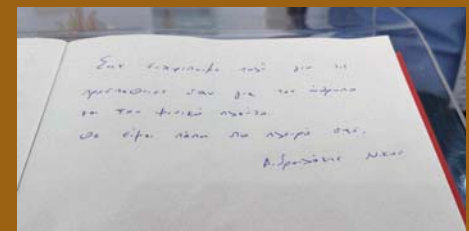 Σας ευχαριστώ πολύ για τις
προσπάθειες σας για τον άνθρωπο
και τον φυσικό πλούτο.
Θα είμαι πάντα στο πλευρό σας.
Νίκος